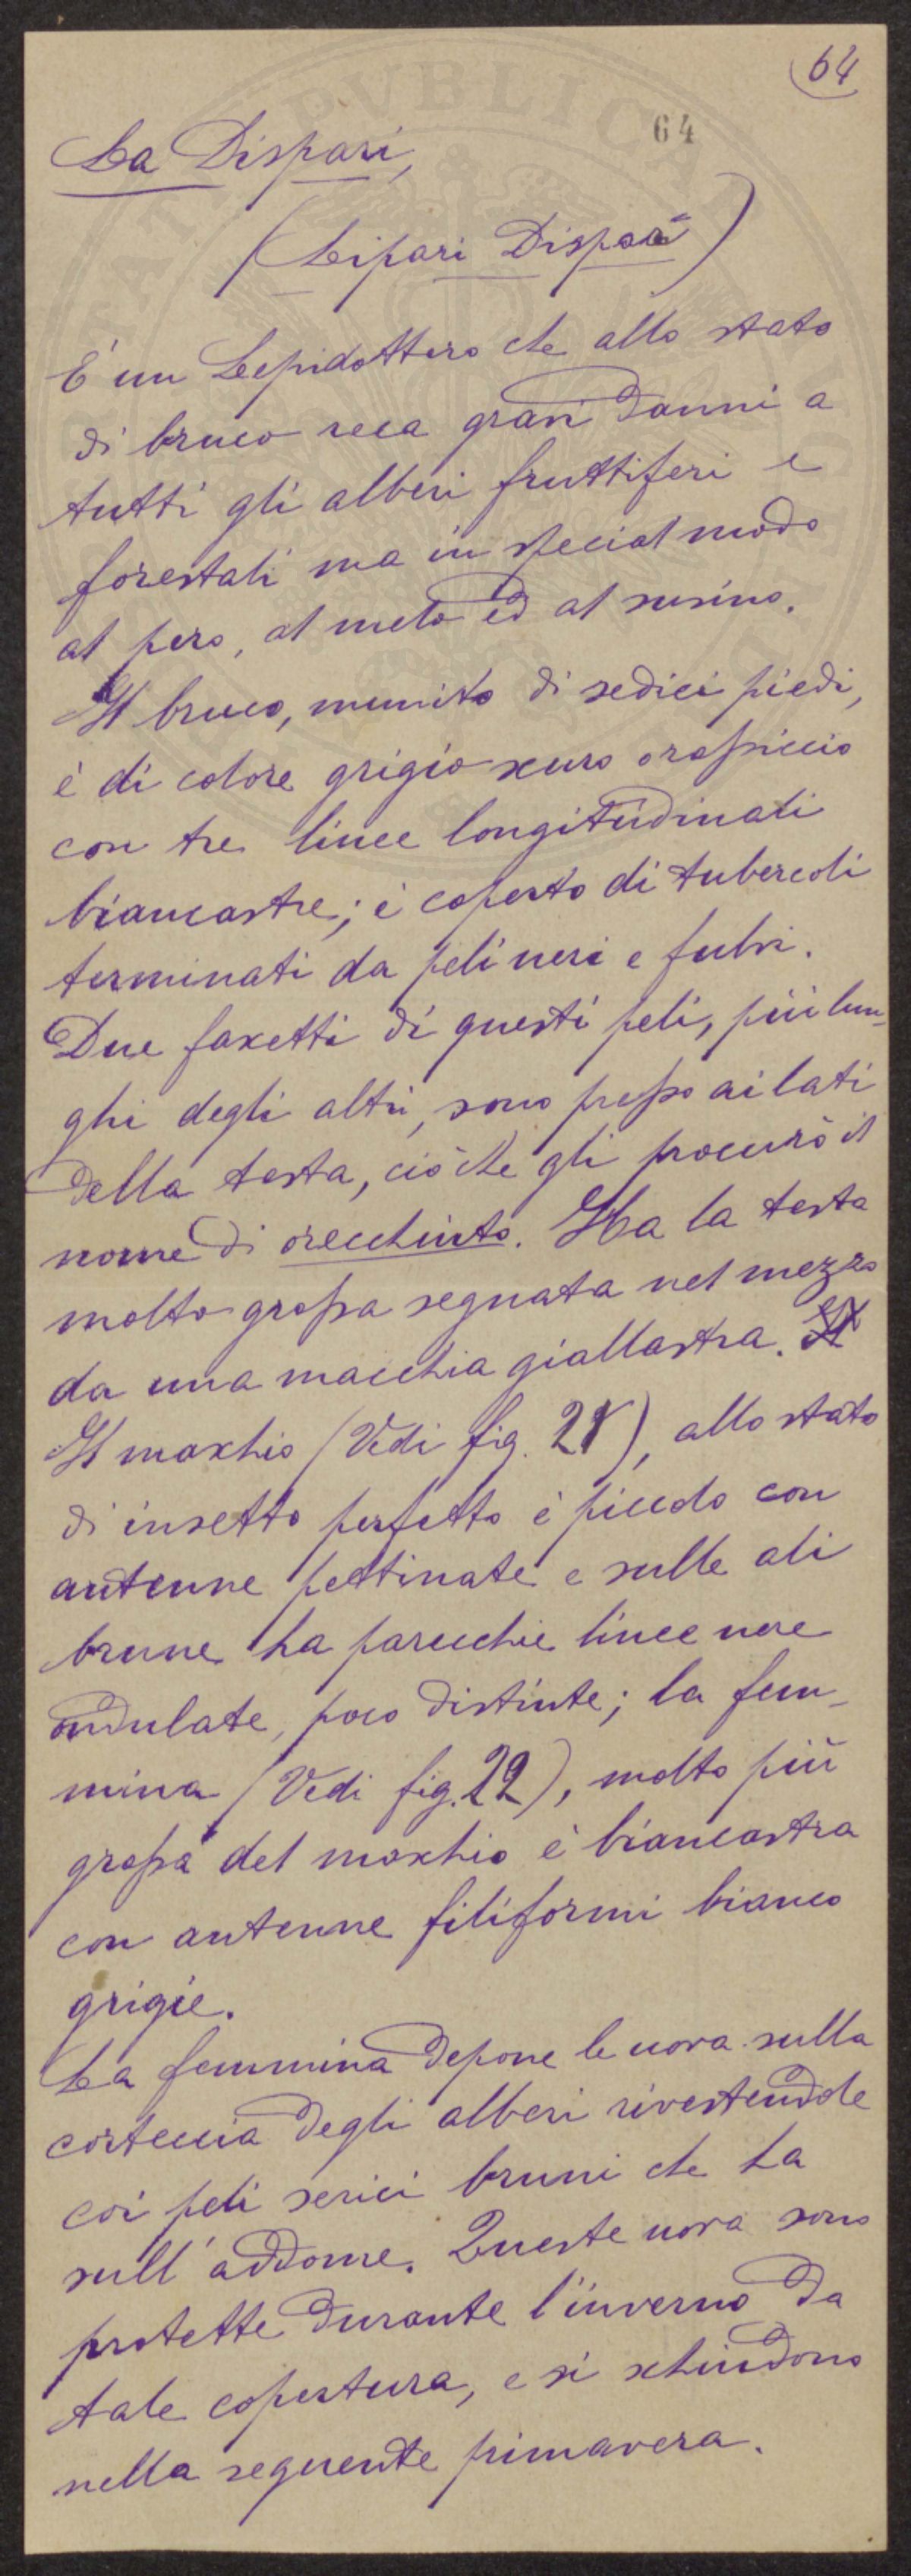 64
64
La Dispari,
(Lipari Dispari)
È un Lepidottero che allo stato
di bruco reca gravi danni a
tutti gli alberi fruttiferi e
forestali ma in special modo
al pero, al melo ed al susino.
Il bruco, munito di sedici piedi,
è di colore grigio scuro o rossiccio
con tre linee longitudinali
biancastre; è coperto di tubercoli
terminati da peli neri e fulvi.
Due fascetti di questi peli, più lun-
ghi degli altri, sono presso ai lati
della testa, ciò che gli procurò il
nome di orecchiuto. Ha la testa
molto grossa segnata nel mezzo
da una macchia giallastra. Il
Il maschio (Vedi fig. 21), allo stato
di insetto perfetto è piccolo con
antenne pettinate e sulle ali
brune ha parecchie linee nere
ondulate, poco distinte; la fem-
mina (Vedi fig. 22), molto più
grossa del maschio è biancastra
con antenne filiformi bianco
grigie.
La femmina depone le uova sulla
corteccia degli alberi rivestendole
coi peli serici bruni che ha
sull'addome. Queste uova sono
protette durante l'inverno da
tale copertura, e si schiudono
nella seguente primavera.